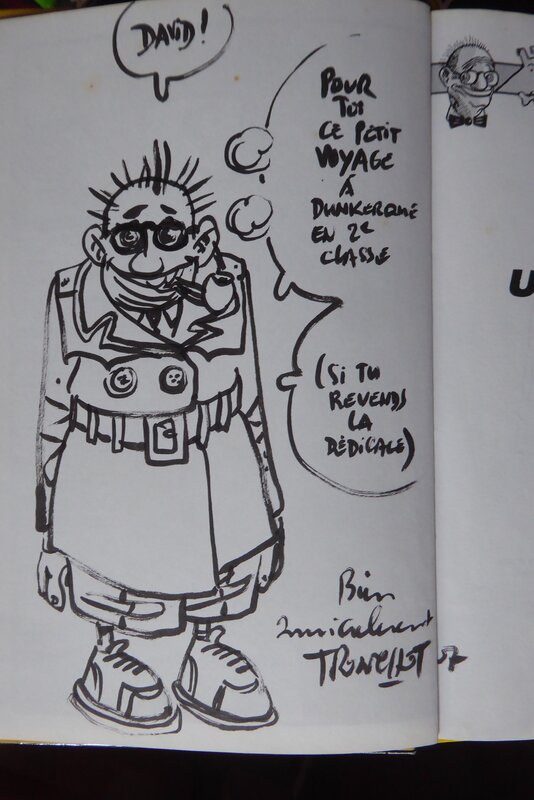 DAVID !
POUR
TOI
CE PETIT
VOYAGE
À
DUNKERQUE
EN 2e
CLASSE
(SI TU
REVENDS
LA
DÉDICACE)
Bien
amicalement
TRONCHET 97
U